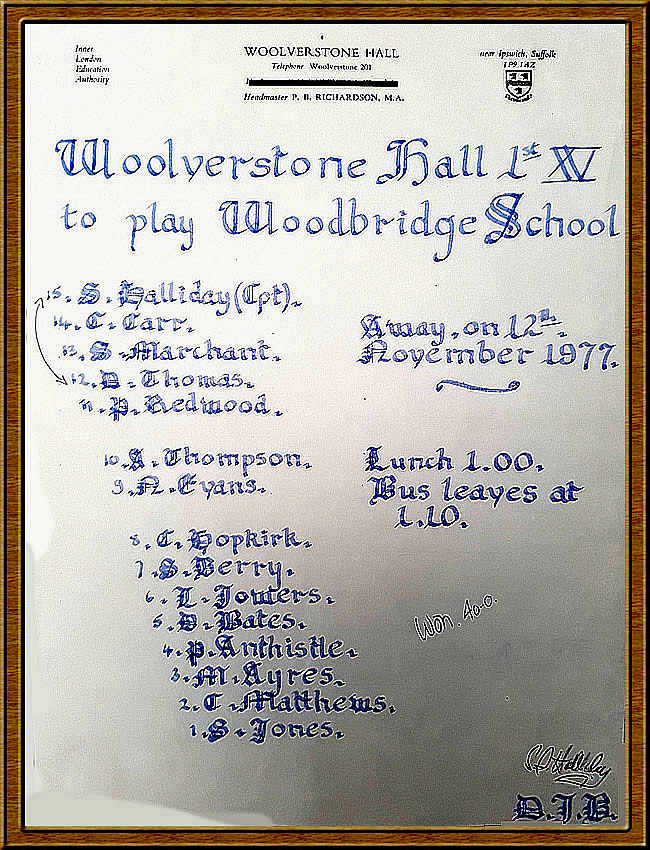 Inner
London
Education
Authority
WOOLVERSTONE HALL
Telephone Woolverstone 201
Headmaster P. B. RICHARDSON, M.A.
near Ipswich, Suffolk
IP9 1AZ
Woolverstone Hall 1st XV
to play Woodbridge School
15. S. Halliday (Cpt).
14. C. Carr.
13. S. Marchant.
12. D. Thomas.
11. P. Redwood.
Away, on 12th.
November 1977.
10. A. Thompson.
9. N. Evans.
Lunch 1.00.
Bus leaves at
1.10.
8. C. Hopkirk.
7. S. Berry.
6. L. Jowers.
5. D. Bates.
4. P. Anthistle.
3. M. Ayres.
2. C. Matthews.
1. S. Jones.
Won. 40-0.
D.J.B.